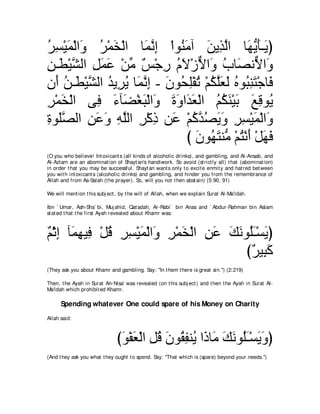 (يَـأَيُّهَا الَّذِينَ آمَنُواْ إِنَّمَا الْخَمْرُ وَالْمَيْسِرُ
وَالأَنصَابُ وَالأَزْلاَمُ رِجْسٌ مِّنْ عَمَلِ الشَّيْطَـنِ
فَاجْتَنِبُوهُ لَعَلَّكُمْ تُفْلِحُونَ - إِنَّمَا يُرِيدُ الشَّيْطَـنُ أَن
يُوقِعَ بَيْنَكُمُ الْعَدَاوَةَ وَالْبَغْضَآءَ فِى الْخَمْرِ
وَالْمَيْسِرِ وَيَصُدَّكُمْ عَن ذِكْرِ اللَّهِ وَعَنِ الصَّلَوةِ
فَهَلْ أَنْتُمْ مُّنتَهُونَ )
(O you who believe! Intoxicants (all kinds of alcoholic drinks), and gambling, and Al-Ansab, and
Al-Azlam are an abomination of Shaytan's handiwork. So avoid (strictly all) that (abomination)
in order that you may be successful. Shaytan wants only to excite enmity and hatred between
you with intoxicants (alcoholic drinks) and gambling, and hinder you from the remembrance of
Allah and from As-Salah (the prayer). So, will you not then abstain) (5:90, 91)
We will mention this subject, by the will of Allah, when we explain Surat Al-Ma'idah.
Ibn `Umar, Ash-Sha`bi, Mujahid, Qatadah, Ar-Rabi` bin Anas and `Abdur-Rahman bin Aslam
stated that the first Ayah revealed about Khamr was:
(يَسْـَلُونَكَ عَنِ الْخَمْرِ وَالْمَيْسِرِ قُلْ فِيهِمَآ إِثْمٌ
كَبِيرٌ)
(They ask you about Khamr and gambling. Say: "In them there is great sin.") (2:219)
Then, the Ayah in Surat An-Nisa' was revealed (on this subject) and then the Ayah in Surat Al-
Ma'idah which prohibited Khamr.
Spending whatever One could spare of his Money on Charity
Allah said:
(وَيَسْـَلُونَكَ مَاذَا يُنفِقُونَ قُلِ الْعَفْوَ)
(And they ask you what they ought to spend. Say: "That which is (spare) beyond your needs.")